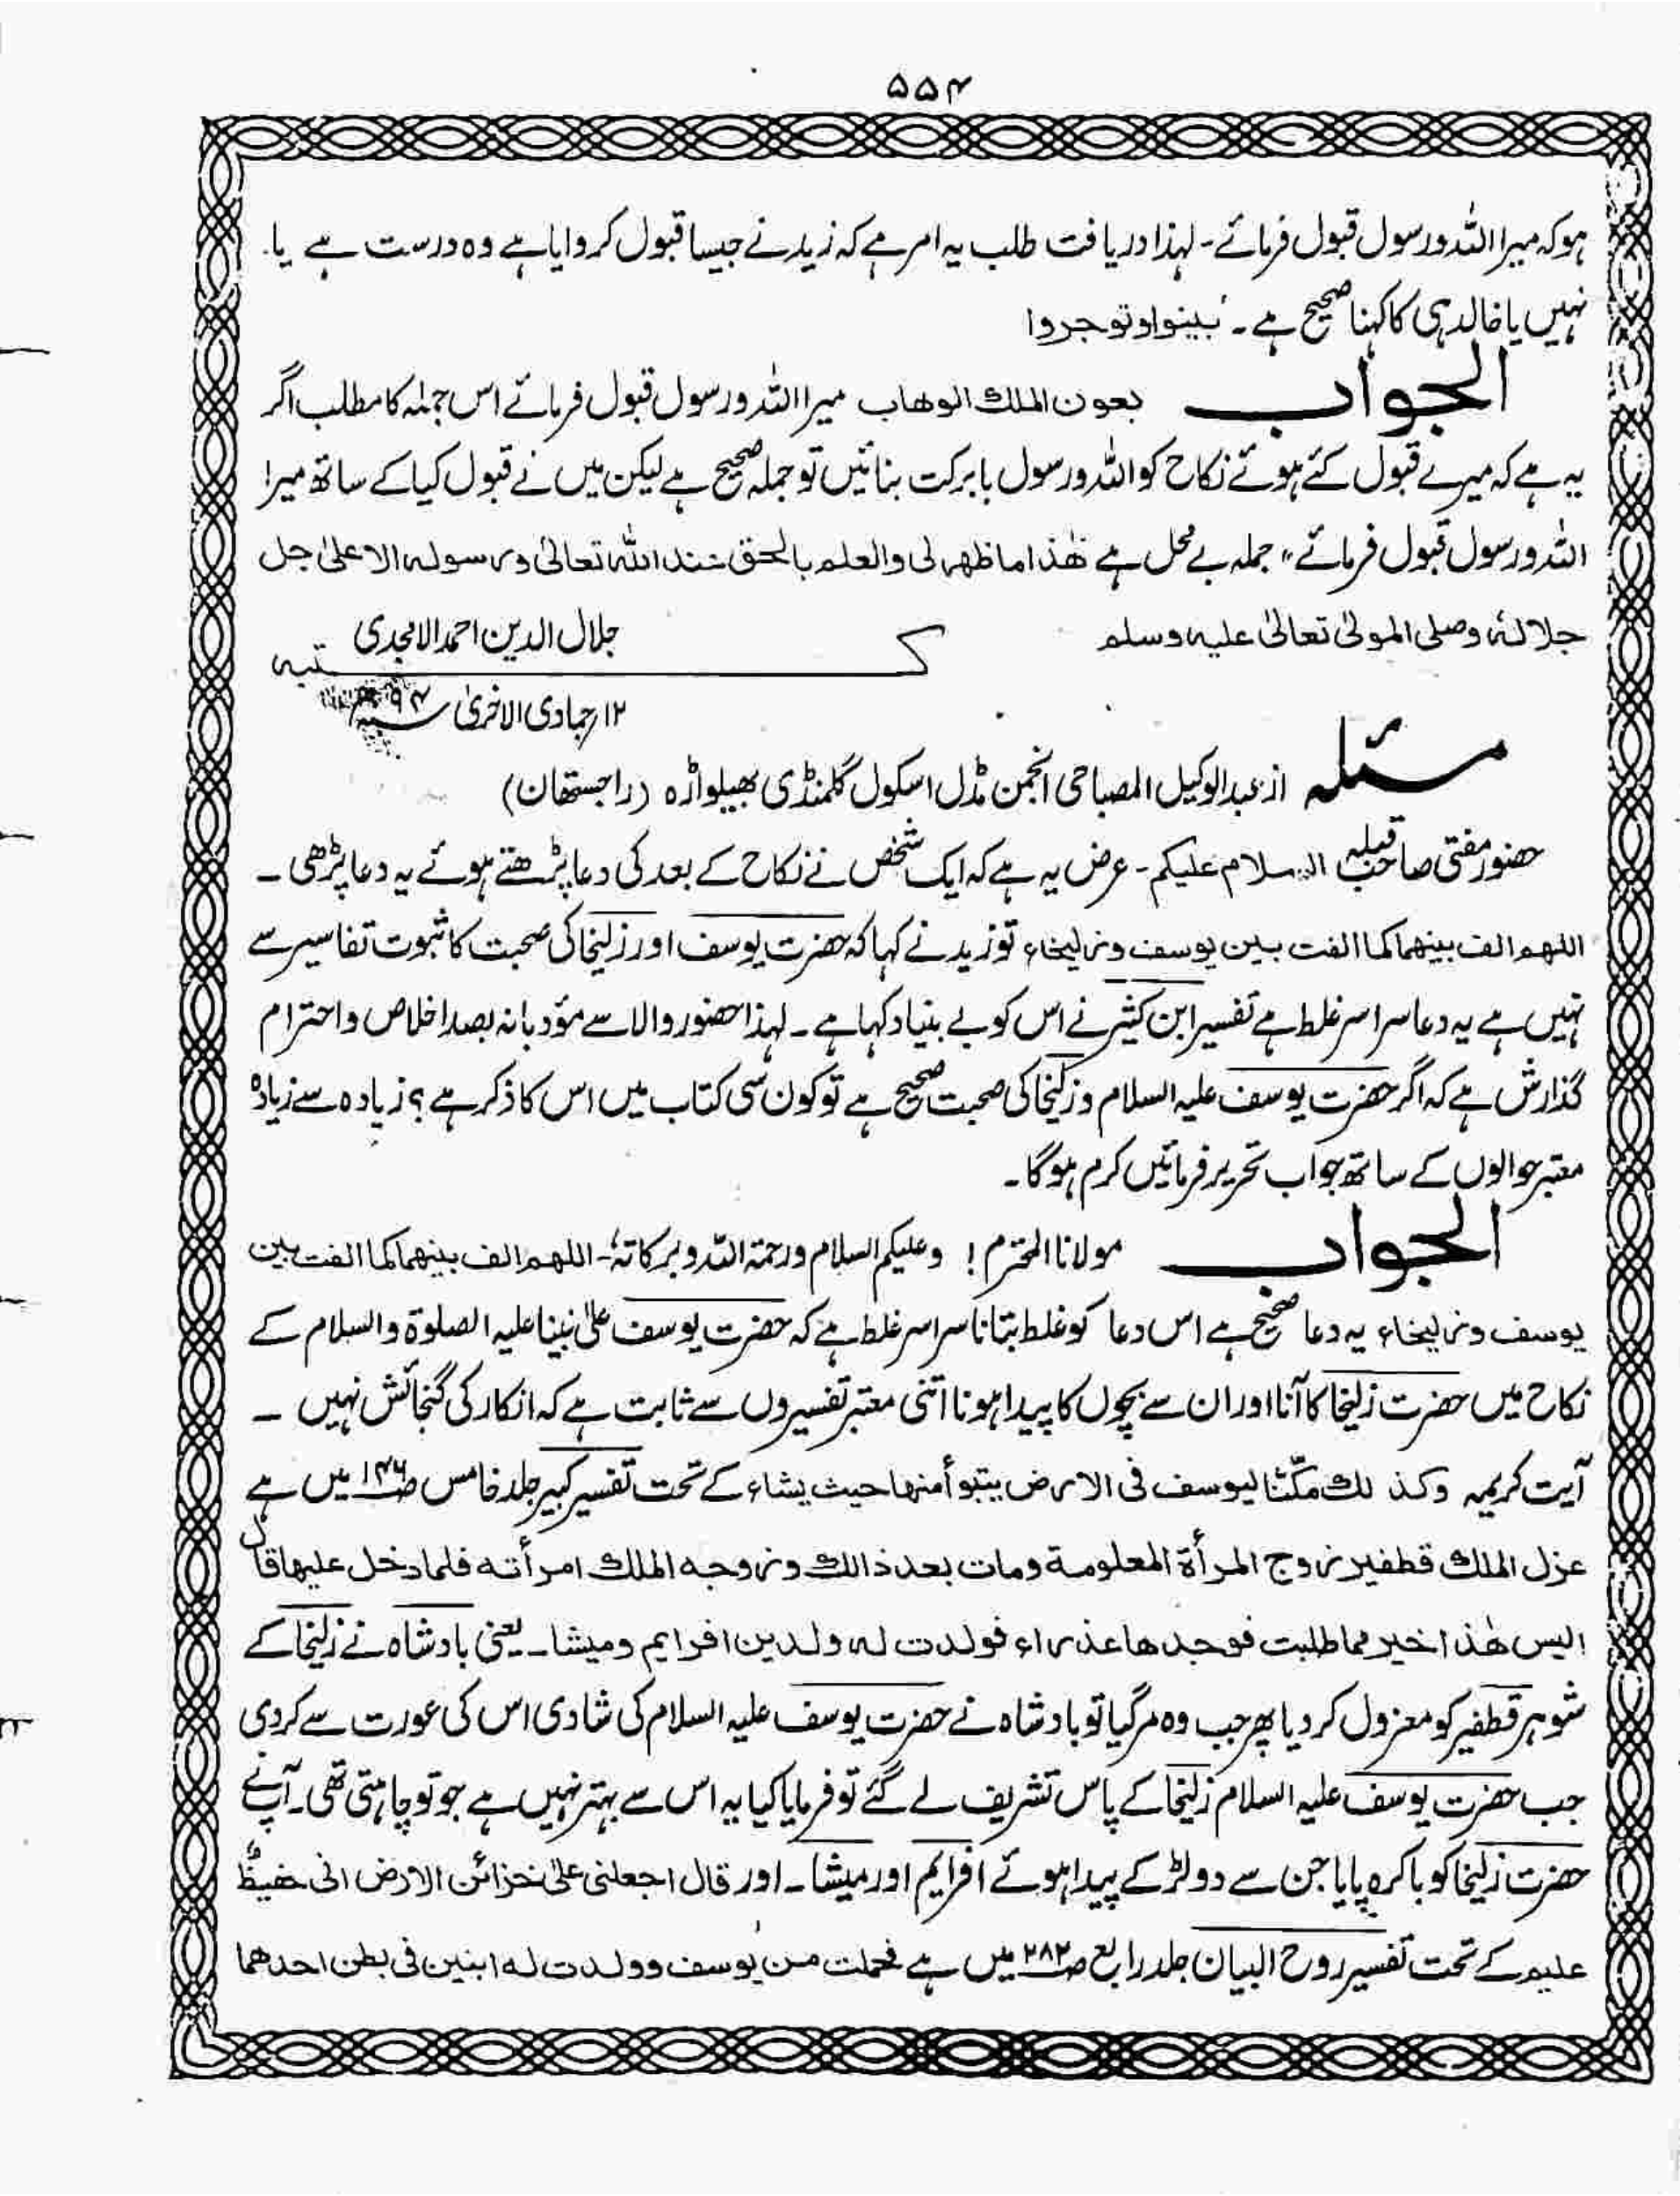 ۵۵۴
ہو کہ میرا اللہ و رسول قبول فرمائے۔ لہذا دریافت طلب یہ امر ہے کہ زید نے جیسا قبول کروایا ہے وہ درست ہے یا
نہیں یا خالد ہی کا کہنا صحیح ہے۔ بینوا وتوجروا
الجواب بعون الملك الوهاب میرا اللہ و رسول قبول فرمائے اس جملہ کا مطلب اگر
یہ ہے کہ میرے قبول کئے ہوئے نکاح کو اللہ و رسول بابرکت بنائیں تو جملہ صحیح ہے لیکن میں نے قبول کیا کے ساتھ میرا
اللہ و رسول قبول فرمائے" جملہ بے محل ہے ھٰذا ما ظھر لی والعلم بالحق عند اللہ تعالیٰ ورسولہ الاعلیٰ جل
جلالہٗ وصلی المولیٰ تعالیٰ علیہ وسلم
کتبہ جلال الدین احمد الامجدی
۱۲/ جمادی الاخریٰ ۹۴
مسئلہ از عبد الوکیل المصباحی انجمن مڈل اسکول گلمنڈی بھیلواڑہ (راجستھان)
حضور مفتی صاحب قبلہ السلام علیکم۔ عرض یہ ہے کہ ایک شخص نے نکاح کے بعد کی دعا پڑھتے ہوئے یہ دعا پڑھی ۔
اللھم الف بینھما کما الفت بین یوسف وزلیخاء تو زید نے کہا کہ حضرت یوسف اور زلیخا کی صحبت کا ثبوت تفاسیر سے
نہیں ہے یہ دعا سراسر غلط ہے تفسیر ابن کثیر نے اس کو بے بنیاد کہا ہے۔ لہذا حضور والا سے مؤدبانہ بصد اخلاص و احترام
گذارش ہے کہ اگر حضرت یوسف علیہ السلام و زلیخا کی صحبت صحیح ہے تو کون سی کتاب میں اس کا ذکر ہے؟ زیادہ سے زیادہ
معتبر حوالوں کے ساتھ جواب تحریر فرمائیں کرم ہوگا۔
الجواب مولانا المحترم! وعلیکم السلام ورحمۃ اللہ وبرکاتہٗ۔ اللھم الف بینھما کما الفت بین
یوسف وزلیخاء یہ دعا صحیح ہے اس دعا کو غلط بتانا سراسر غلط ہے کہ حضرت یوسف علیٰ نبینا علیہ الصلوۃ والسلام کے
نکاح میں حضرت زلیخا کا آنا اور ان سے بچوں کا پیدا ہونا اتنی معتبر تفسیروں سے ثابت ہے کہ انکار کی گنجائش نہیں ۔
آیت کریمہ وکذلك مکّنّا لیوسف فی الارض یتبوأ منھا حیث یشاء کے تحت تفسیر کبیر جلد خامس ص۱۴۶ میں ہے
عزل الملك قطفیر زوج المرأۃ المعلومۃ ومات بعد ذالك وزوجہ الملك امرأتہ فلما دخل علیھا قال
الیس ھٰذا خیر مما طلبت فوجدھا عذراء فولدت لہ ولدین افرایم ومیشا۔ یعنی بادشاہ نے زلیخا کے
شوہر قطفیر کو معزول کر دیا پھر جب وہ مر گیا تو بادشاہ نے حضرت یوسف علیہ السلام کی شادی اس کی عورت سے کردی
جب حضرت یوسف علیہ السلام زلیخا کے پاس تشریف لے گئے تو فرمایا کیا یہ اس سے بہتر نہیں ہے جو تو چاہتی تھی۔ آپ نے
حضرت زلیخا کو باکرہ پایا جن سے دو لڑکے پیدا ہوئے افرایم اور میشا۔ اور قال اجعلنی علیٰ خزائن الارض انی حفیظٌ
علیم کے تحت تفسیر روح البیان جلد رابع ص۲۸۲ میں ہے فحملت من یوسف وولدت لہ ابنین فی بطن احدھما